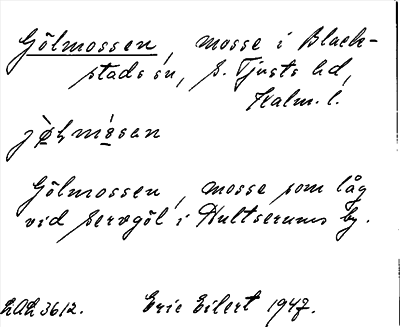 Gölmossen, mosse i Black-
stads sn, S. Tjusts hd,
Kalm. l.
jø̀lmósan
Gölmossen, mosse som låg
vid Servgöl i Hultserums by.
LAL 3612. Eric Eilert 1947.